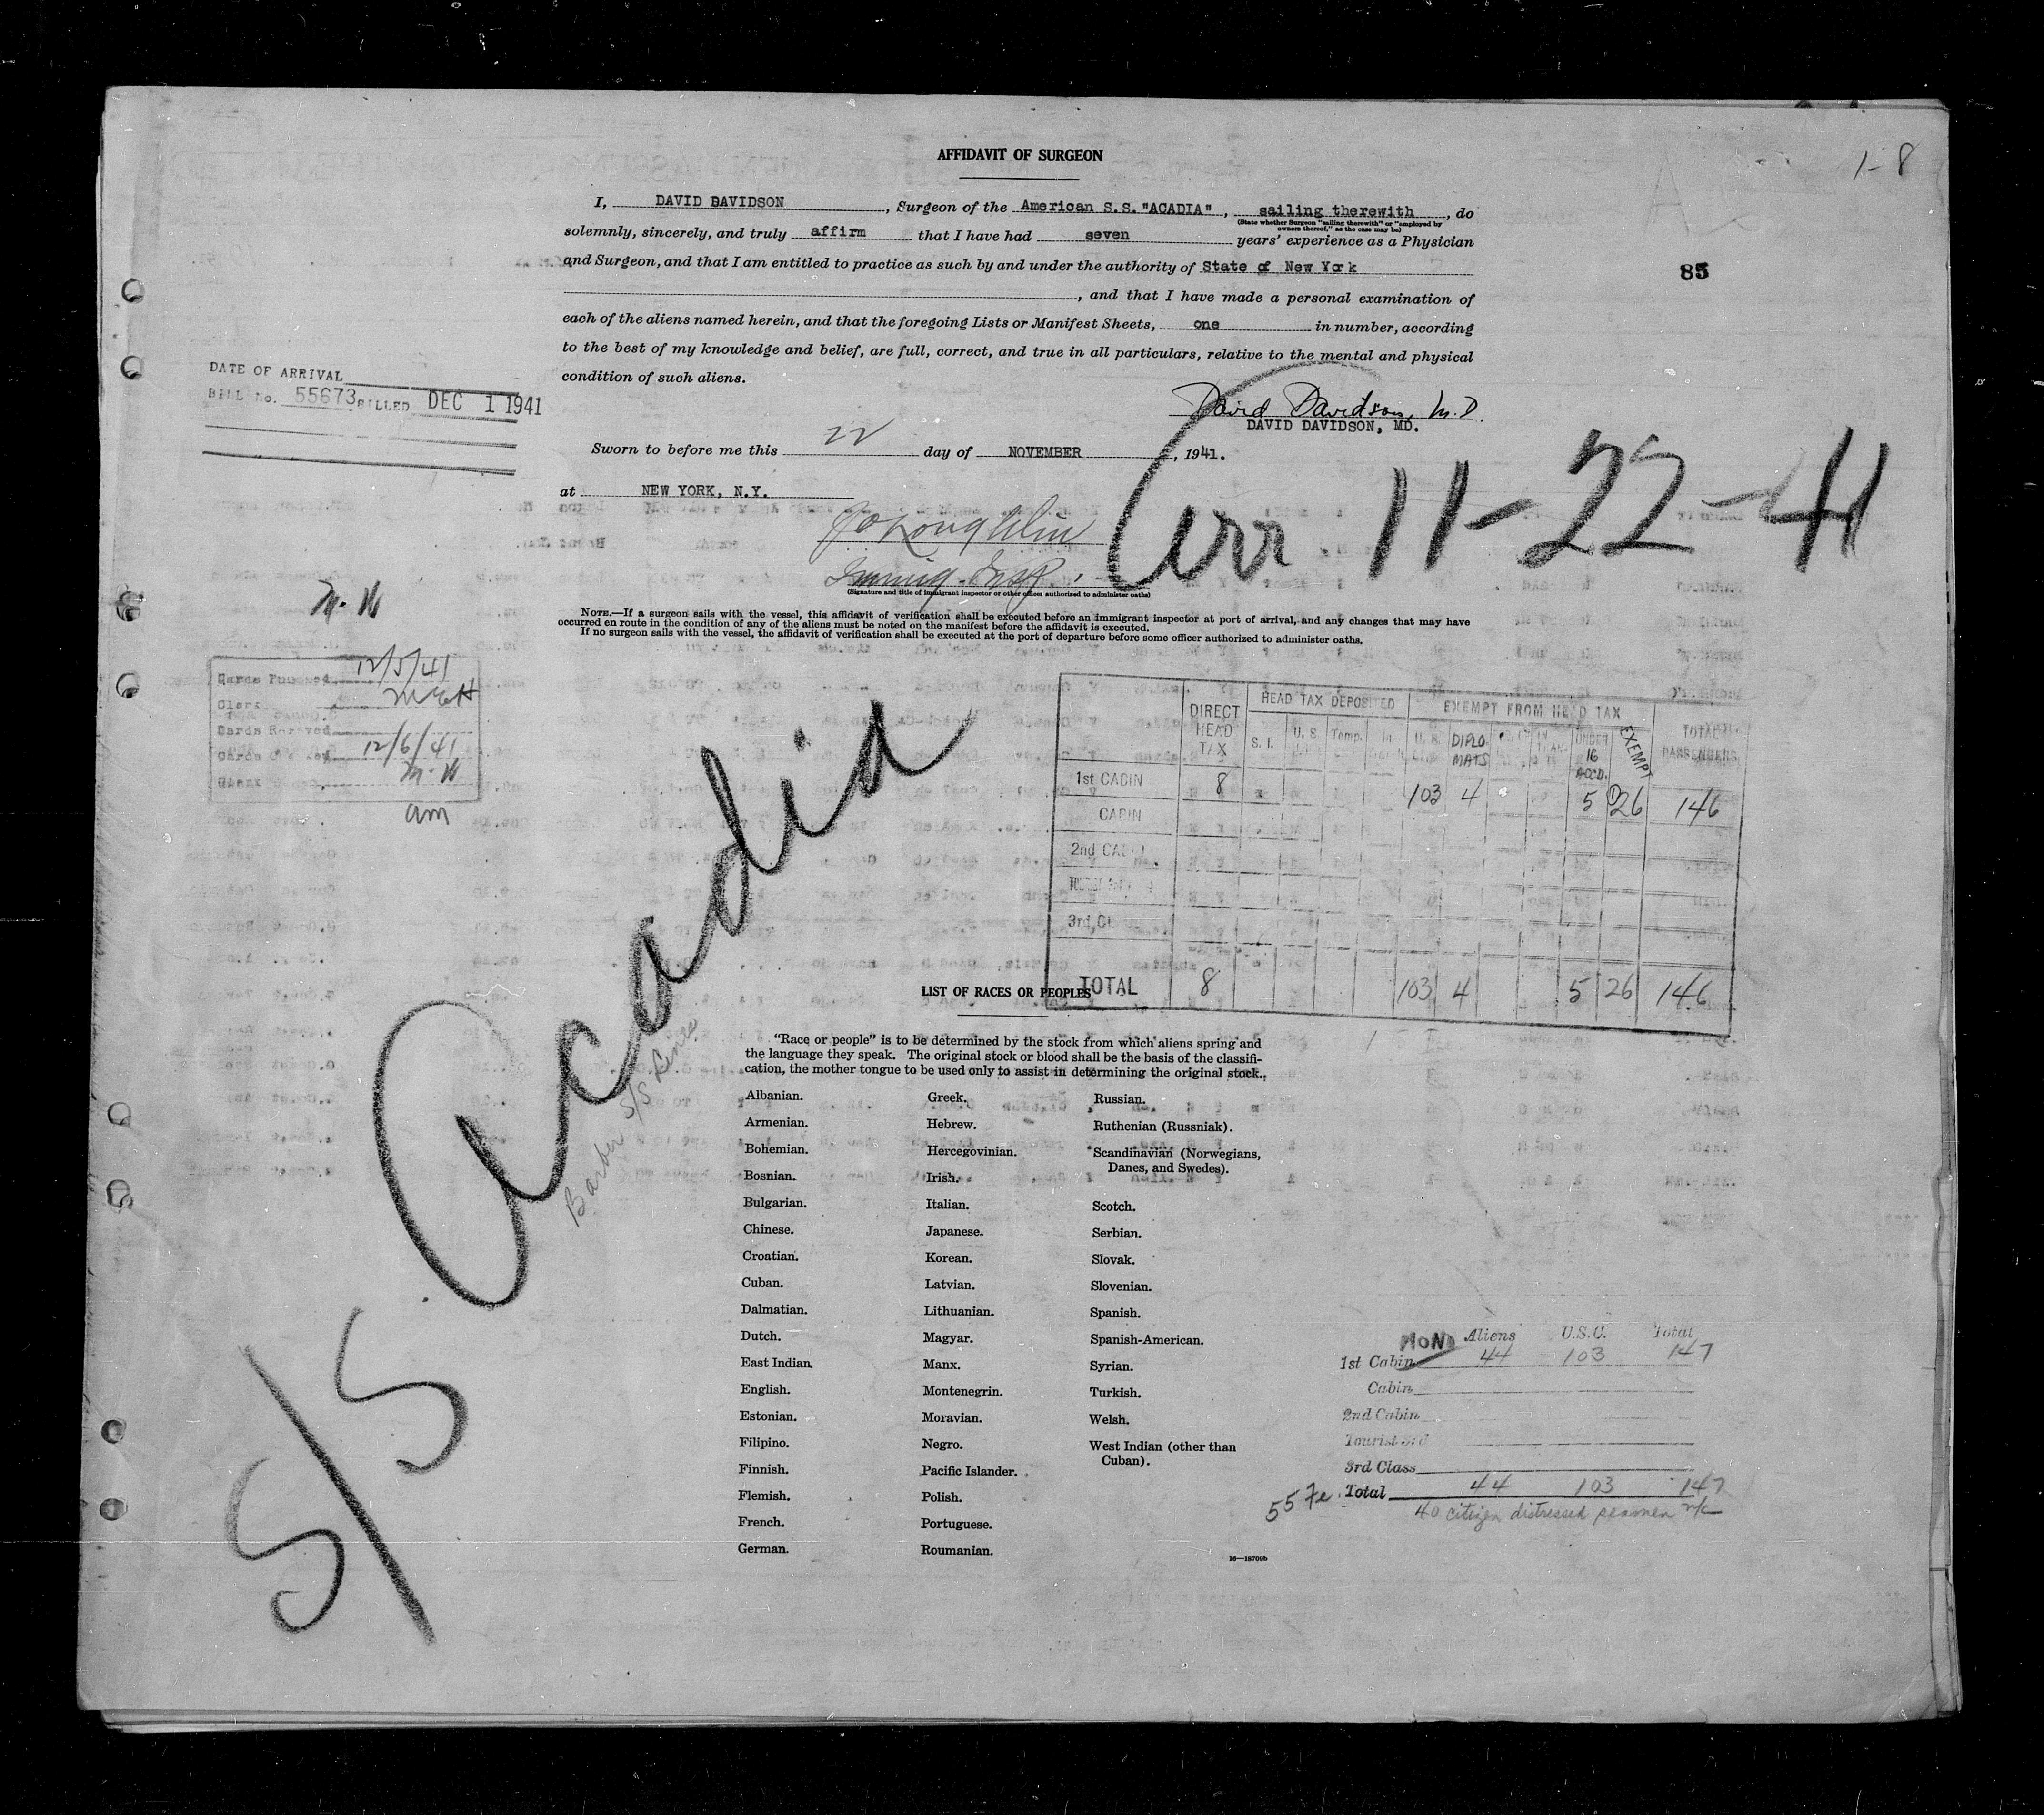 1-8
AFFIDAVIT OF SURGEON
I, DAVID DAVIDSON, Surgeon of the American S.S. "ACADIA", sailing therewith, do
(State whether Surgeon "sailing therewith" or "employed by
owners thereof," as the case may be)
solemnly, sincerely, and truly affirm that I have had seven years' experience as a Physician
and Surgeon, and that I am entitled to practice as such by and under the authority of State of New York
85
, and that I have made a personal examination of
each of the aliens named herein, and that the foregoing Lists or Manifest Sheets, one in number, according
to the best of my knowledge and belief, are full, correct, and true in all particulars, relative to the mental and physical
condition of such aliens.
DATE OF ARRIVAL
BILL No. 55673 BILLED DEC 1 1941
David Davidson, M.D.
DAVID DAVIDSON, MD.
Sworn to before me this 22 day of NOVEMBER, 1941.
at NEW YORK, N.Y.
Arr. 11-22-41
Immig. Insp.
(Signature and title of immigrant inspector or other officer authorized to administer oaths)
NOTE.—If a surgeon sails with the vessel, this affidavit of verification shall be executed before an immigrant inspector at port of arrival, and any changes that may have
occurred en route in the condition of any of the aliens must be noted on the manifest before the affidavit is executed.
If no surgeon sails with the vessel, the affidavit of verification shall be executed at the port of departure before some officer authorized to administer oaths.
M. W
Cards Punched 12/5/41
Clerk McH
Cards 12/6/41
M. W
am
S/S Acadia
Barber S/S Lines
DIRECT HEAD TAX HEAD TAX DEPOSITED EXEMPT FROM HEAD TAX TOTAL PASSENGERS
S. I. U. S. Temp. In U. S. DIPLO MATS UNDER 16 ACCD. EXEMPT
1st CABIN 8 103 4 5 26 146
CABIN
2nd CABIN
3rd CL
TOTAL 8 103 4 5 26 146
LIST OF RACES OR PEOPLES
"Race or people" is to be determined by the stock from which aliens spring and
the language they speak. The original stock or blood shall be the basis of the classifi-
cation, the mother tongue to be used only to assist in determining the original stock.
Albanian.
Armenian.
Bohemian.
Bosnian.
Bulgarian.
Chinese.
Croatian.
Cuban.
Dalmatian.
Dutch.
East Indian.
English.
Estonian.
Filipino.
Finnish.
Flemish.
French.
German.
Greek.
Hebrew.
Hercegovinian.
Irish.
Italian.
Japanese.
Korean.
Latvian.
Lithuanian.
Magyar.
Manx.
Montenegrin.
Moravian.
Negro.
Pacific Islander.
Polish.
Portuguese.
Roumanian.
Russian.
Ruthenian (Russniak).
Scandinavian (Norwegians,
Danes, and Swedes).
Scotch.
Serbian.
Slovak.
Slovenian.
Spanish.
Spanish-American.
Syrian.
Turkish.
Welsh.
West Indian (other than
Cuban).
Aliens U.S.C. Total
1st Cabin 44 103 147
Cabin
2nd Cabin
Tourist 3rd
3rd Class
Total 44 103 147
40 citizen distressed seamen n/c
16—18709b